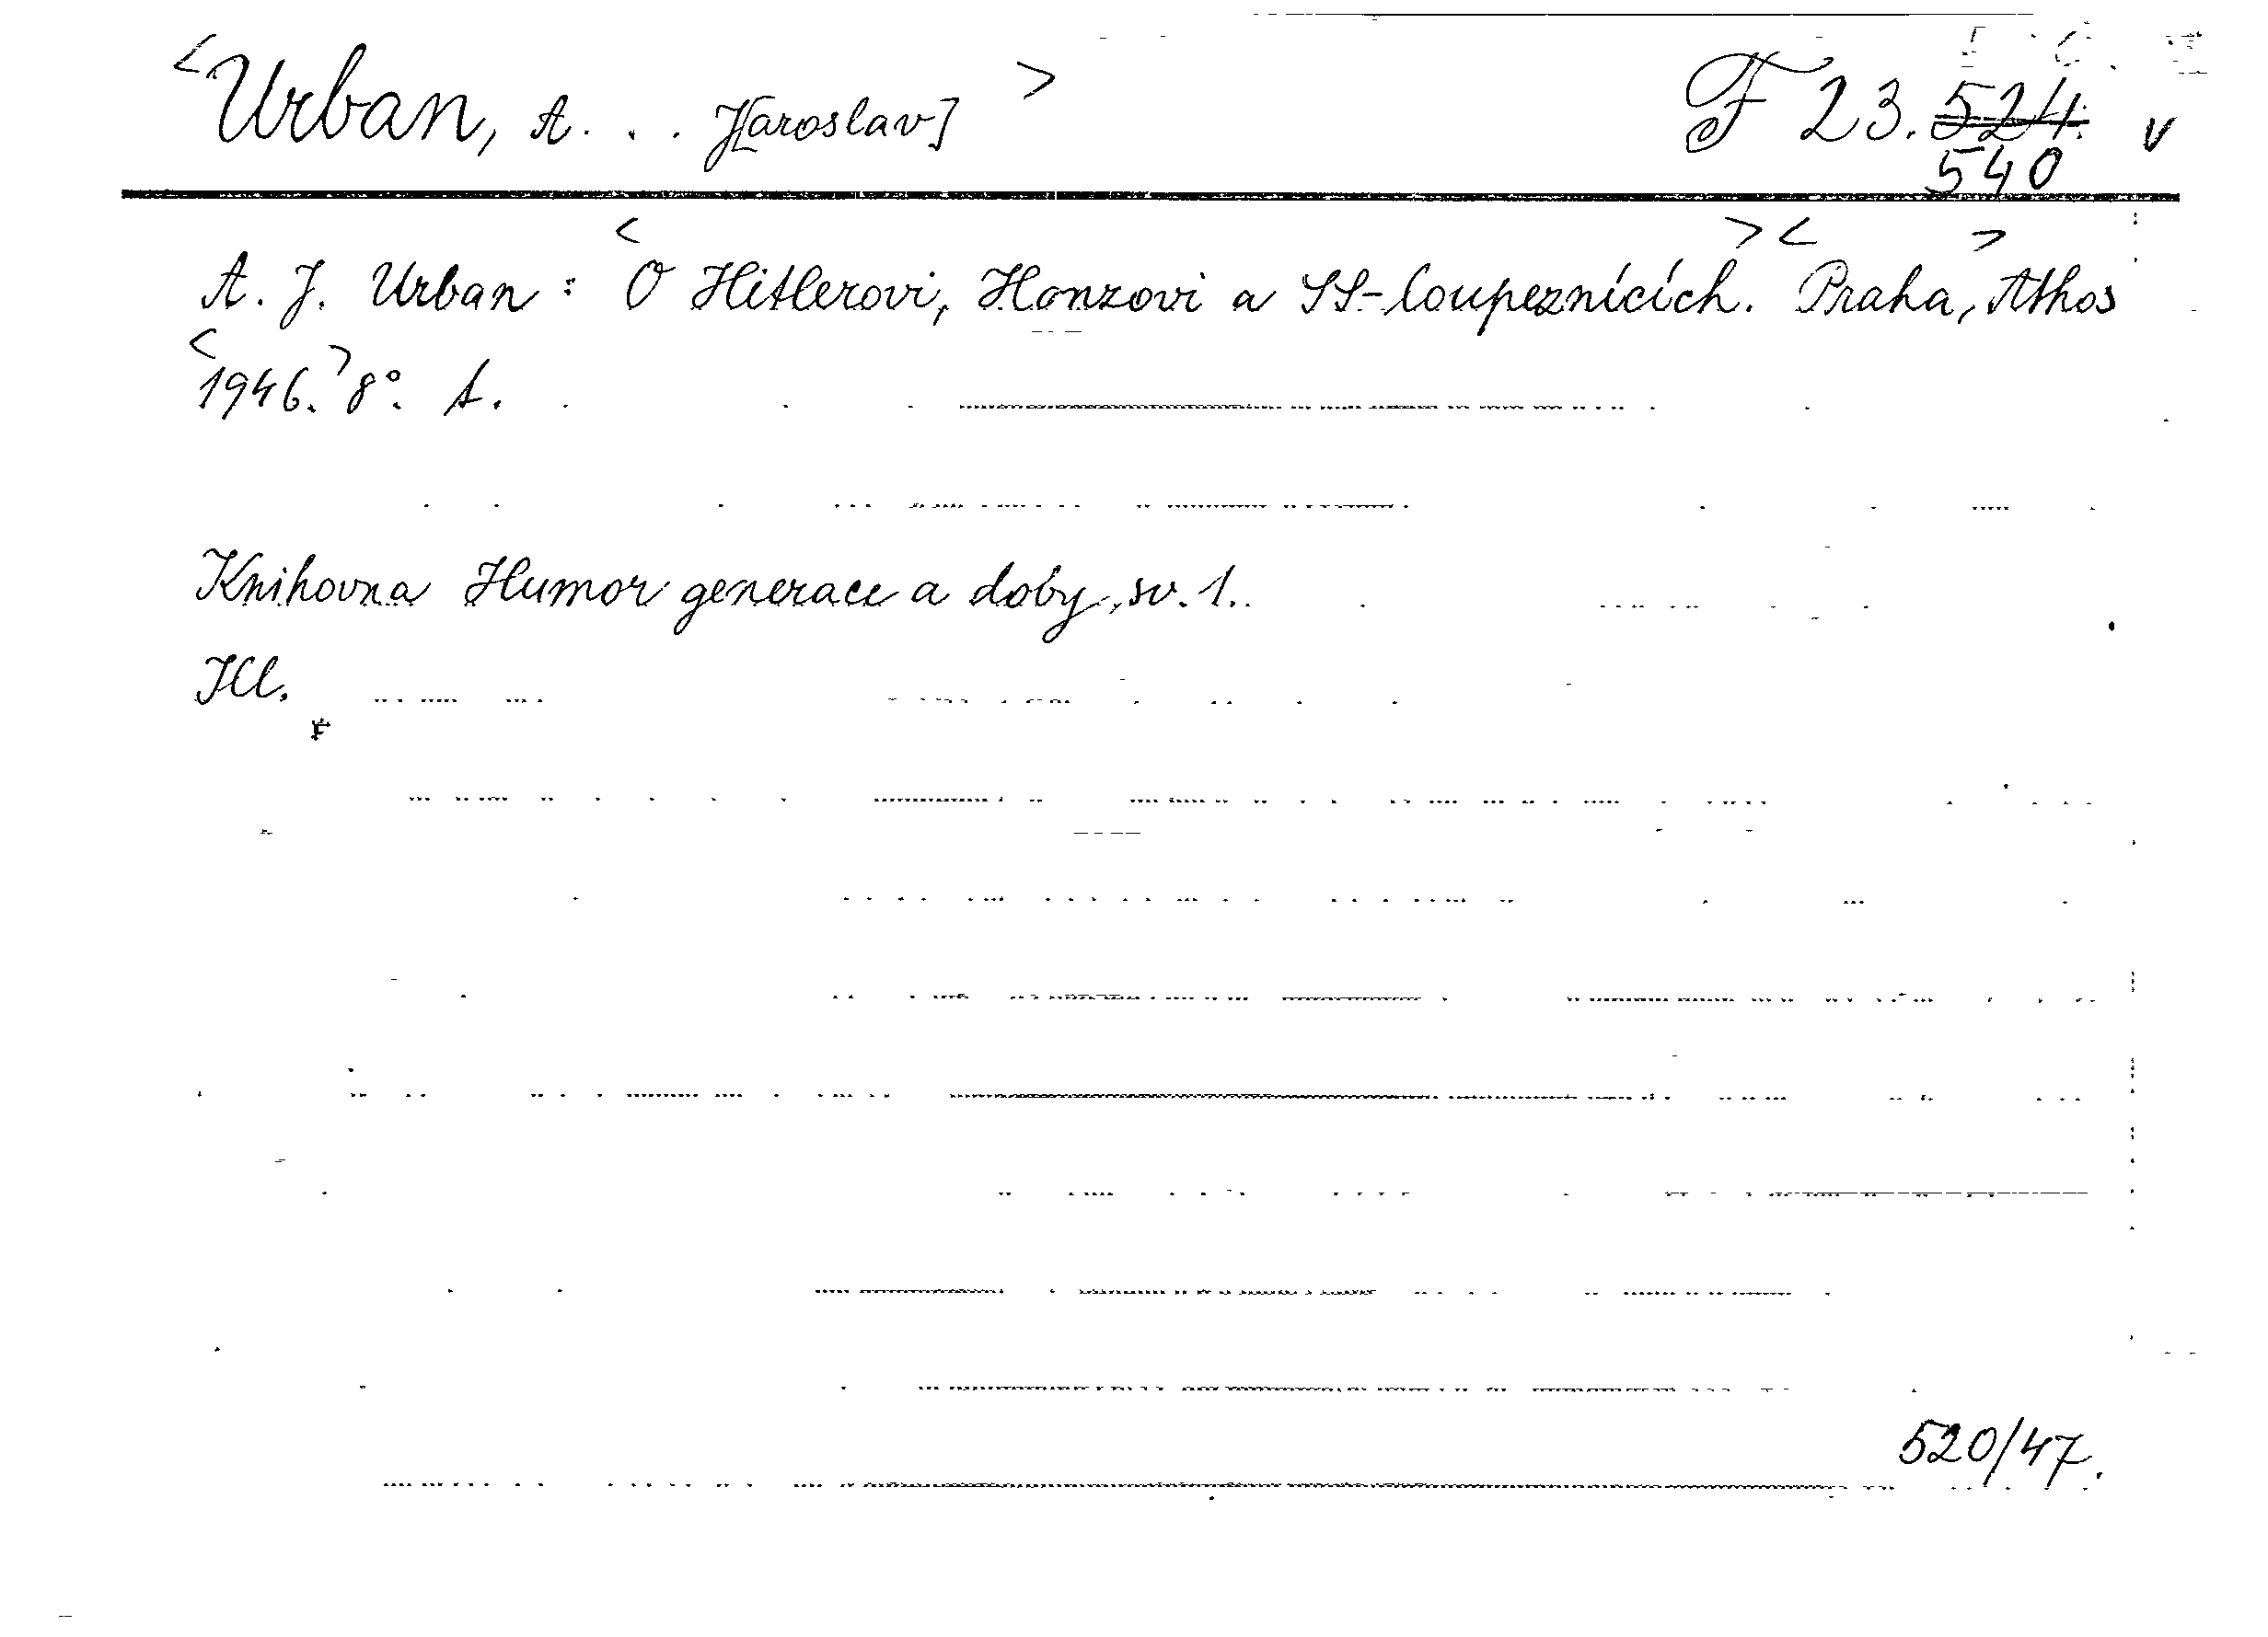 <Urban, A. . . J[aroslav]> F 23.524. v
540
A. J. Urban: <O Hitlerovi, Honzovi a SS-loupeznících.> <Praha,> Athos
<1946.> 8°. A.
Knihovna Humor generace a doby, sv. 1.
Ill.
520/47.